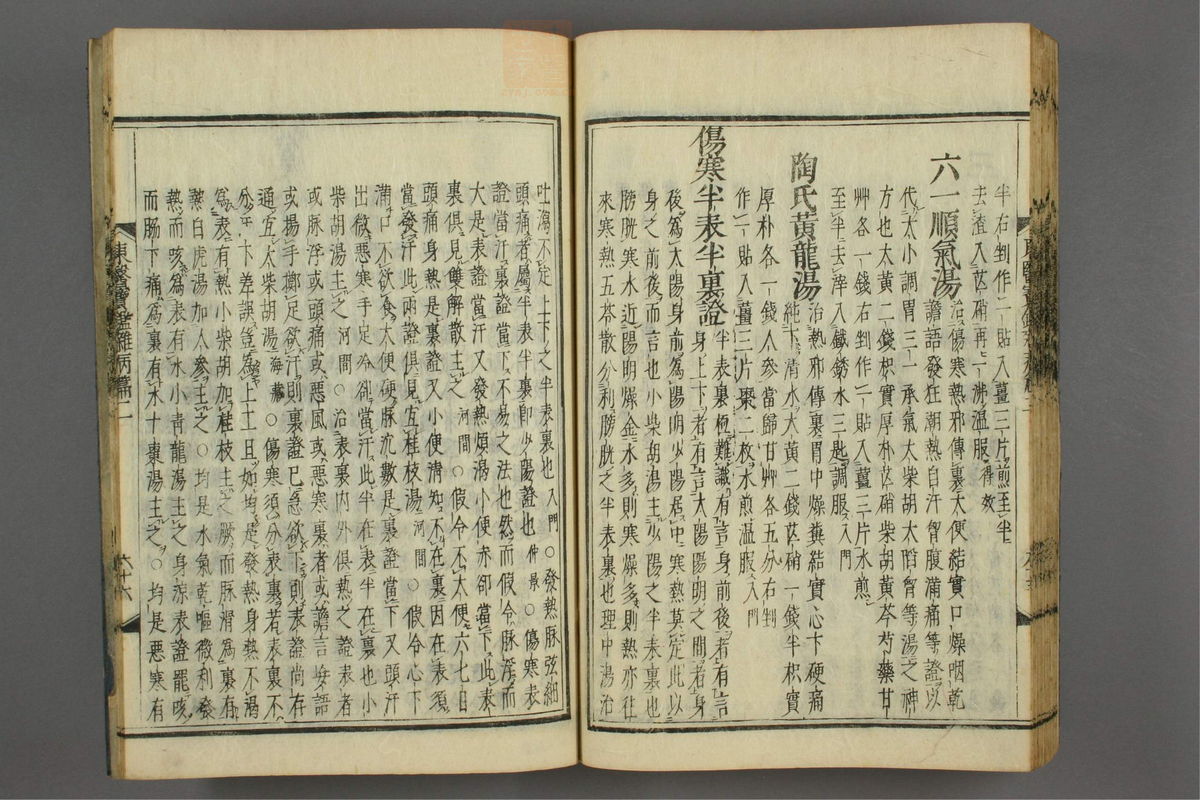 半右剉作一貼入薑三片煎至半
去渣入芒硝再一沸溫服得效
六一順氣湯治傷寒熱邪傳裏大便結實口燥咽乾
譫語發狂潮熱自汗胷腹滿痛等證以
代大小調胃三一承氣大柴胡大陷胷等湯之神
方也大黃二錢枳實厚朴芒硝柴胡黃芩芍藥甘
艸各一錢右剉作一貼入薑三片水煎
至半去滓入鐵銹水三匙調服入門
陶氏黃龍湯治熱邪傳裏胃中燥糞結實心下硬痛
純下清水大黃二錢芒硝一錢半枳實
厚朴各一錢人參當歸甘艸各五分右剉
作一貼入薑三片棗二枚水煎溫服入門
傷寒半表半裏證半表裏極難識有言身前後者有言
身上下者有言太陽陽明之間者身
後爲太陽身前爲陽明少陽居中寒熱莫定此以
身之前後而言也小柴胡湯主少陽之半表裏也
膀胱寒水近陽明燥金水多則寒燥多則熱亦往
來寒熱五苓散分利膀胱之半表裏也理中湯治
吐瀉不定上下之半表裏也入門○發熱脉弦細
頭痛者屬半表半裏卽少陽證也仲景○傷寒表
證當汗裏證當下不易之法也然而假令脉浮而
大是表證當汗又發熱煩渴小便赤卻當下此表
裏俱見雙解散主之河間○假令不大便六七日
頭痛身熱是裏證又小便清知不在裏因在表須
當發汗此兩證俱見宜桂枝湯河間○假令心下
滿口不欲食大便硬脉沉數是裏證當下又頭汗
出微惡寒手足冷卻當汗此半在表半在裏也小
柴胡湯主之河間○治表裏內外俱熱之證表者
或脉浮或頭痛或惡風或惡寒裏者或譫言妄語
或揚手擲足欲汗則裏證已急欲下則表證尚存
通宜大柴胡湯海藏○傷寒須分表裏若表裏不
分汗下差誤豈爲上工且如均是發熱身熱不渴
爲表有熱小柴胡加桂枝主之厥而脉滑爲裏有
熱白虎湯加人參主之○均是水氣乾嘔微利發
熱而咳爲表有水小靑龍湯主之身涼表證罷咳
而脇下痛爲裏有水十棗湯主之○均是惡寒有
東醫寶鑑雜病篇二
六十六